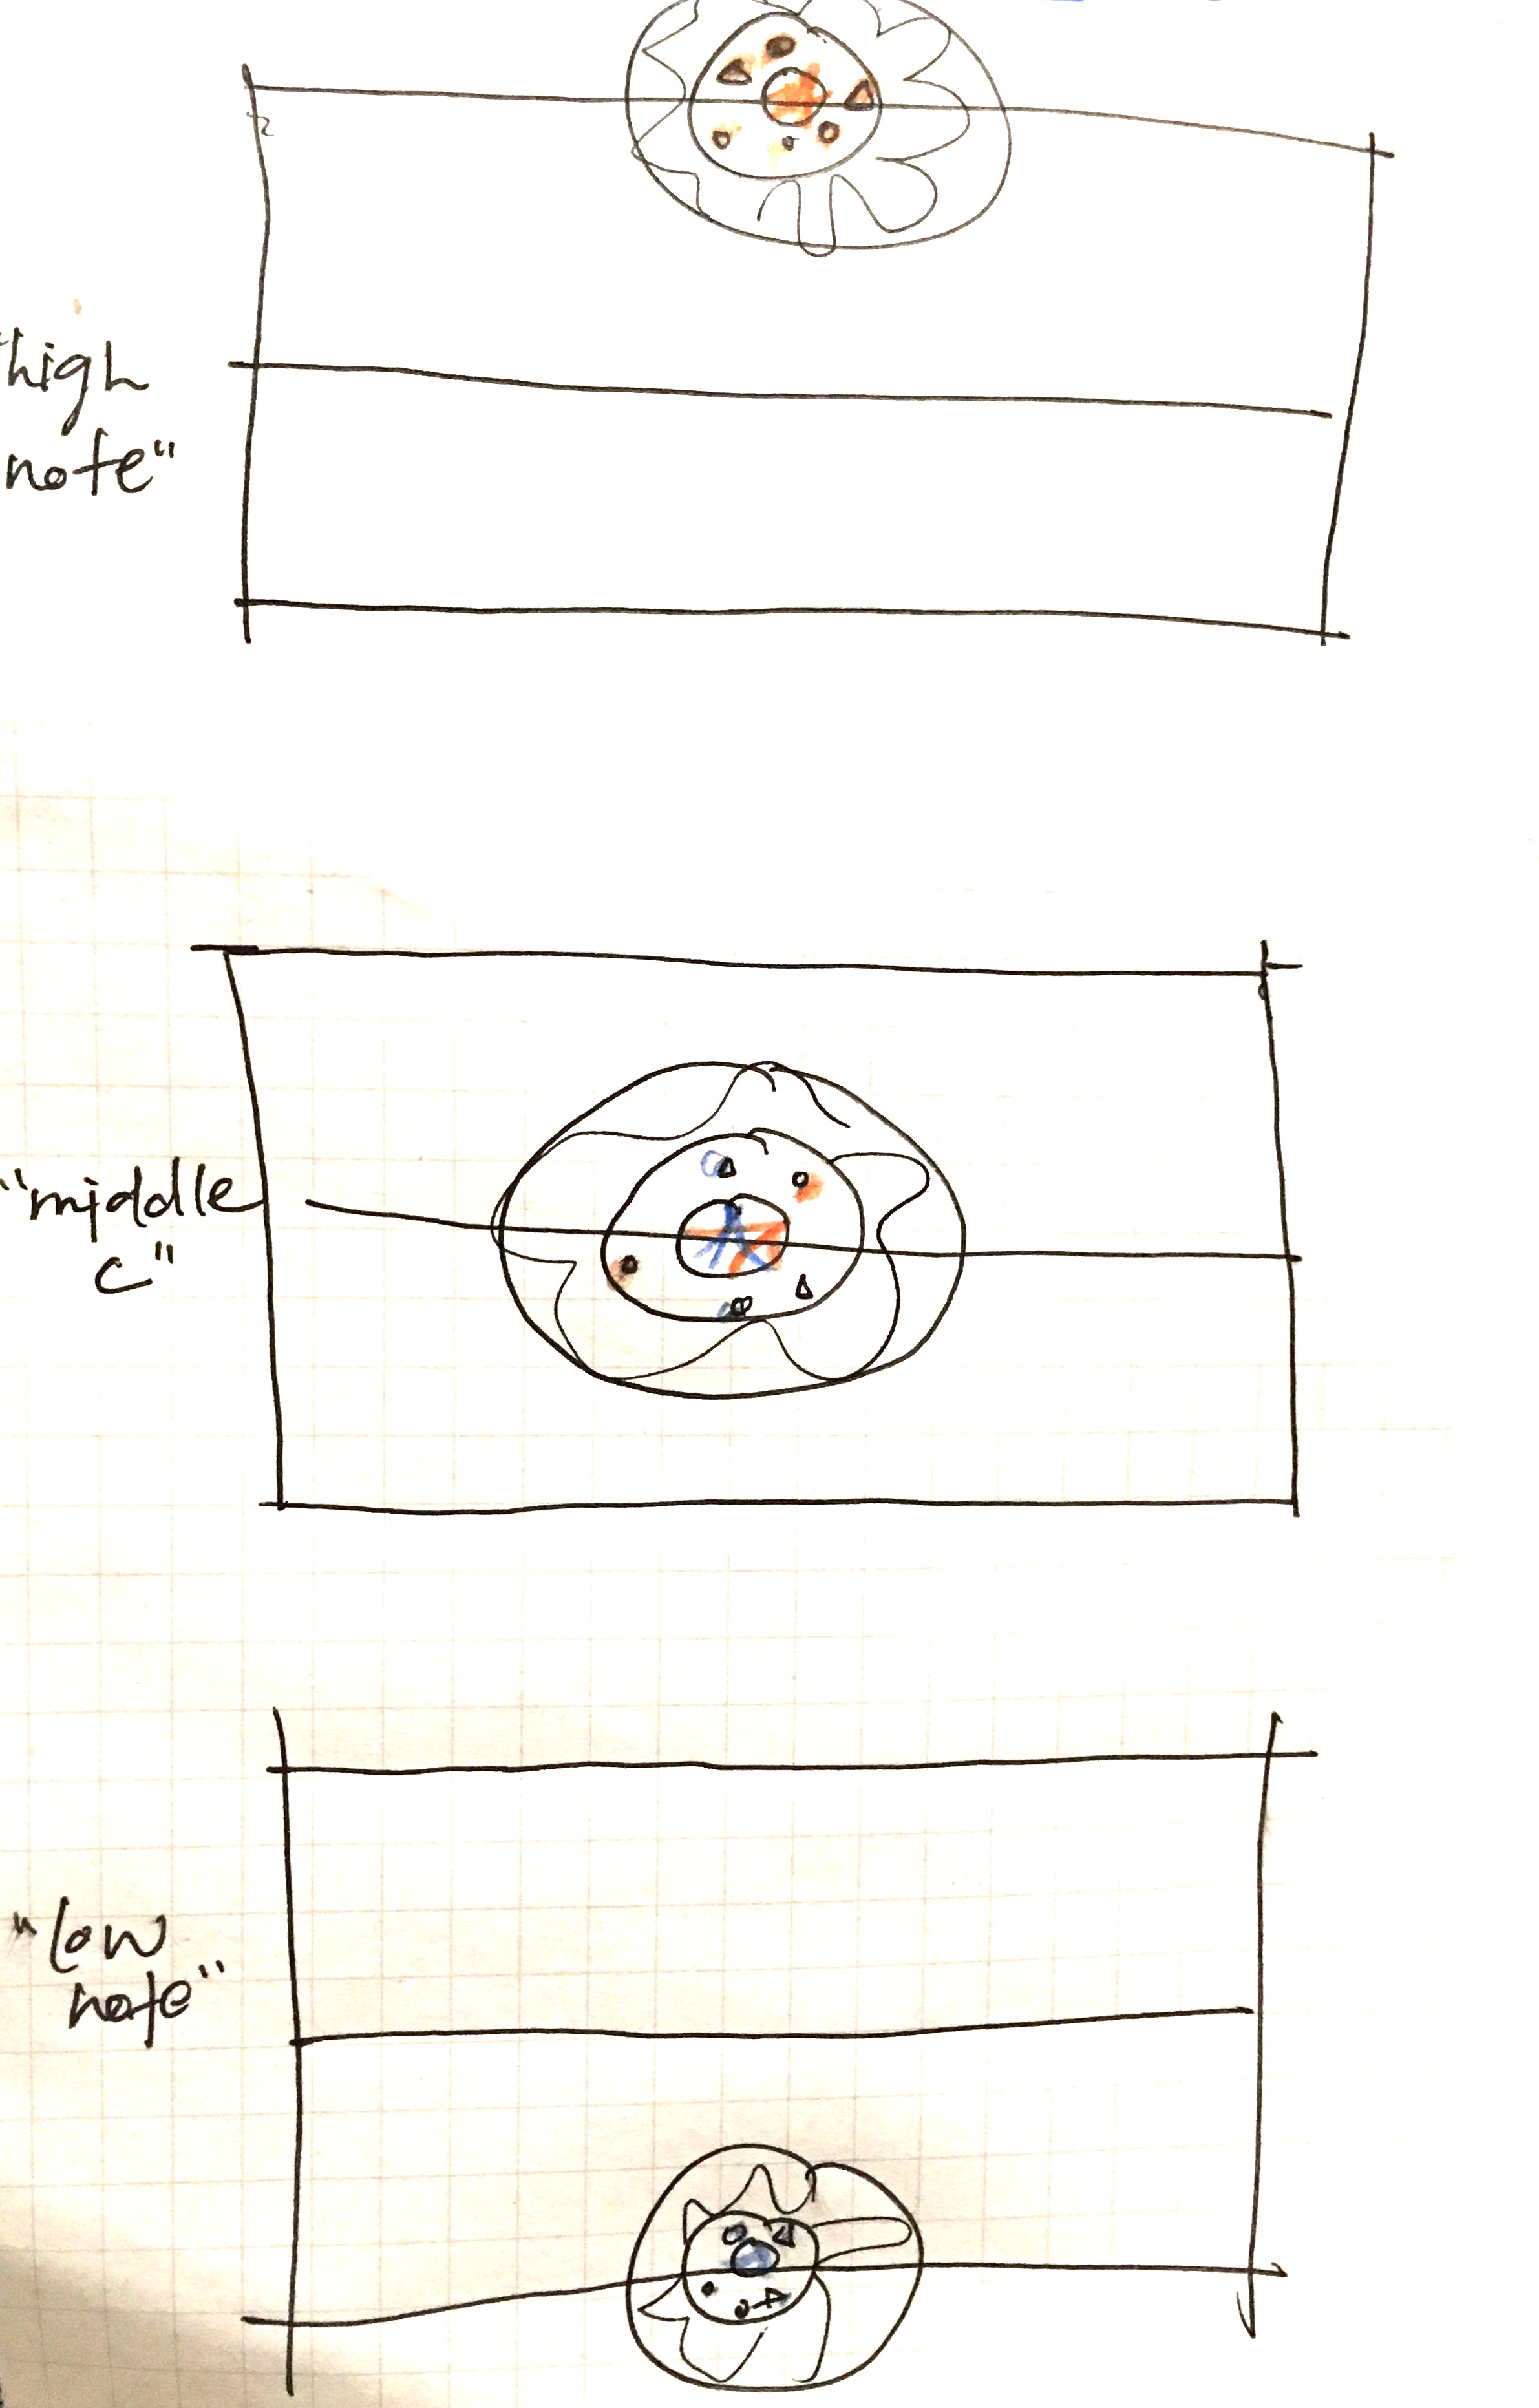 "high
note"
"middle
c"
"low
note"